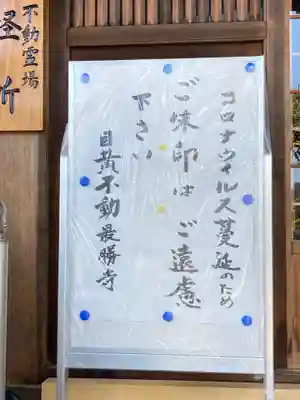 不動霊場
経所
コロナウイルス蔓延のため
ご味印はご遠慮
下さい
目黄不動最勝寺